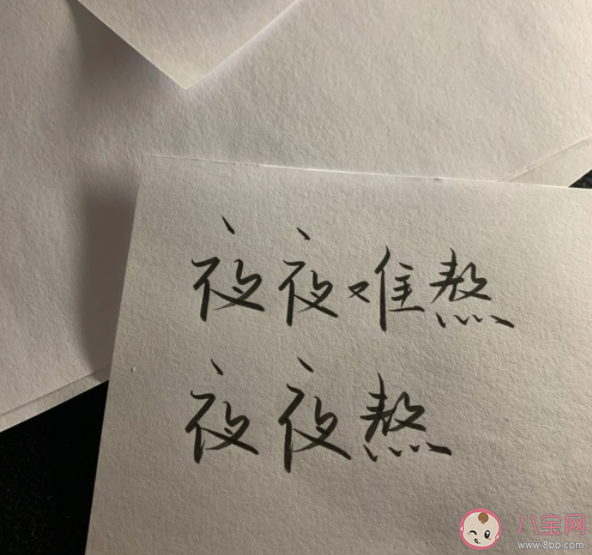 夜夜难熬
夜夜熬
八宝网
www.8bb.com